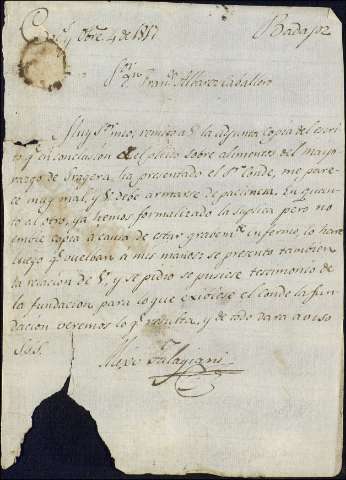 y Obre. 4 de 1817 Badajoz
Sor. Dn. Franco. Albarez Caballero
Muy Sor. mio, remito a V. la adjunta copia del escri
to qe. en conclusión del pleito sobre alimentos del mayo
razgo de ha presentado el Sr. Conde, me pare
ce muy mal, y V. debe armarse de paciencia. En quan
to al otro, ya hemos formalizado la suplica pero no
embie copia à causa de estar gravemte. enfermo, lo hare
luego qe. buelban a mis manos: se presento tambien
la relacion de V. y se pidio se pusiese testimonio de
la fundacion para lo que exiviese el conde la fun
dacion veremos lo qe. resulta, y de todo dara aviso